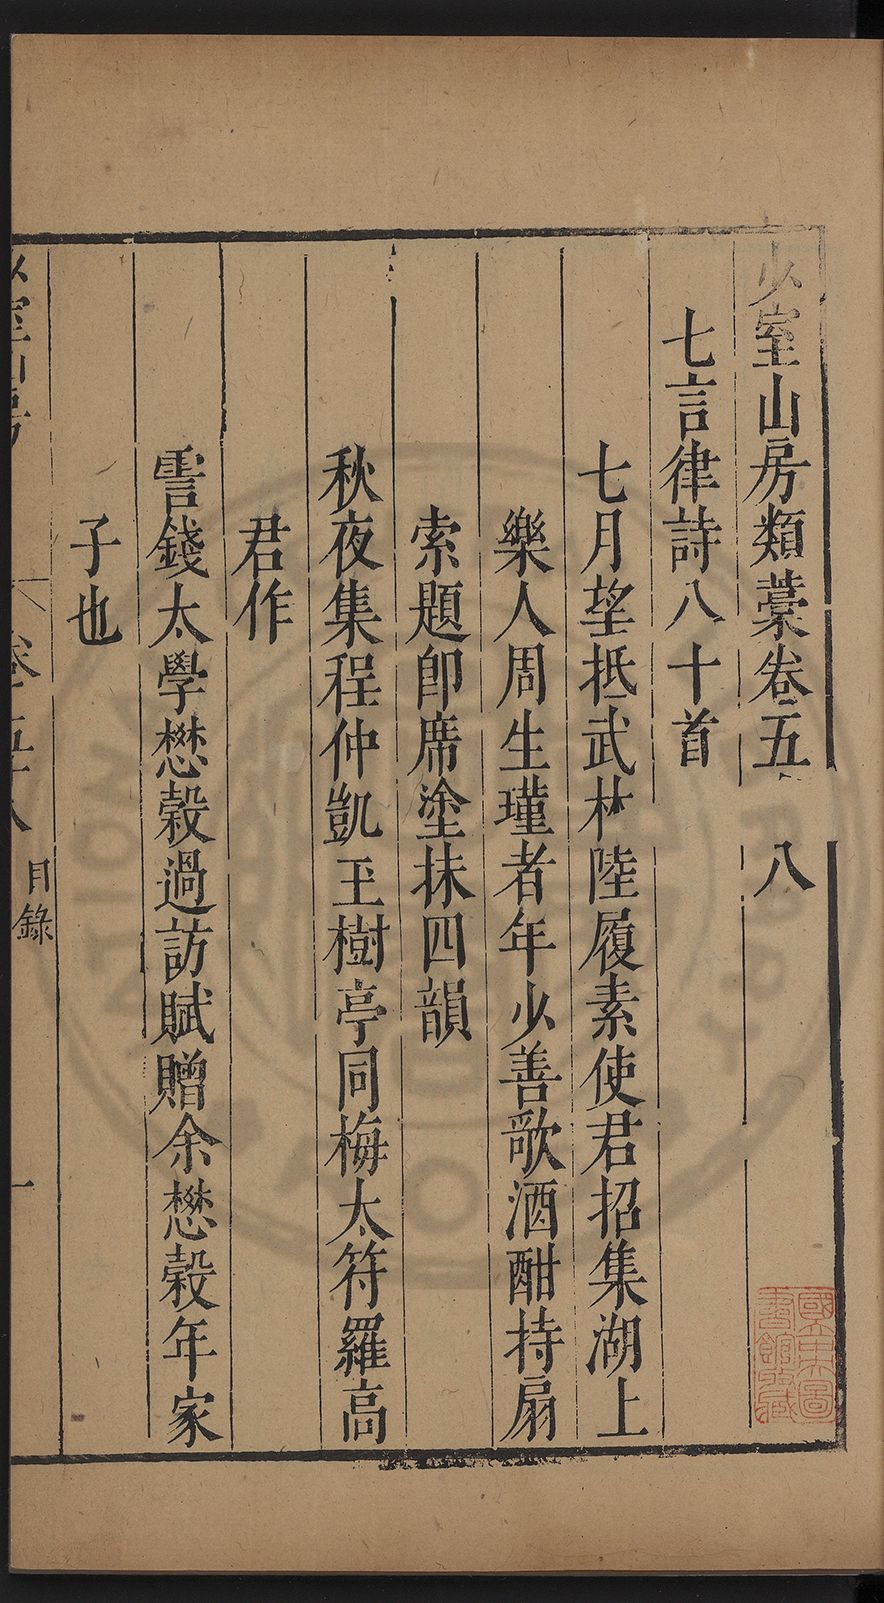 少室山房類藁卷五 八
七言律詩八十首
七月望抵武林陸履素使君招集湖上
樂人周生瑾者年少善歌酒酣持扇
索題卽席塗抹四韻
秋夜集程仲凱玉樹亭同梅太符羅高
君作
霅錢太學懋穀過訪賦贈余懋穀年家
子也
少室山房
卷五十八
目錄
一
國立中央圖
書館收藏